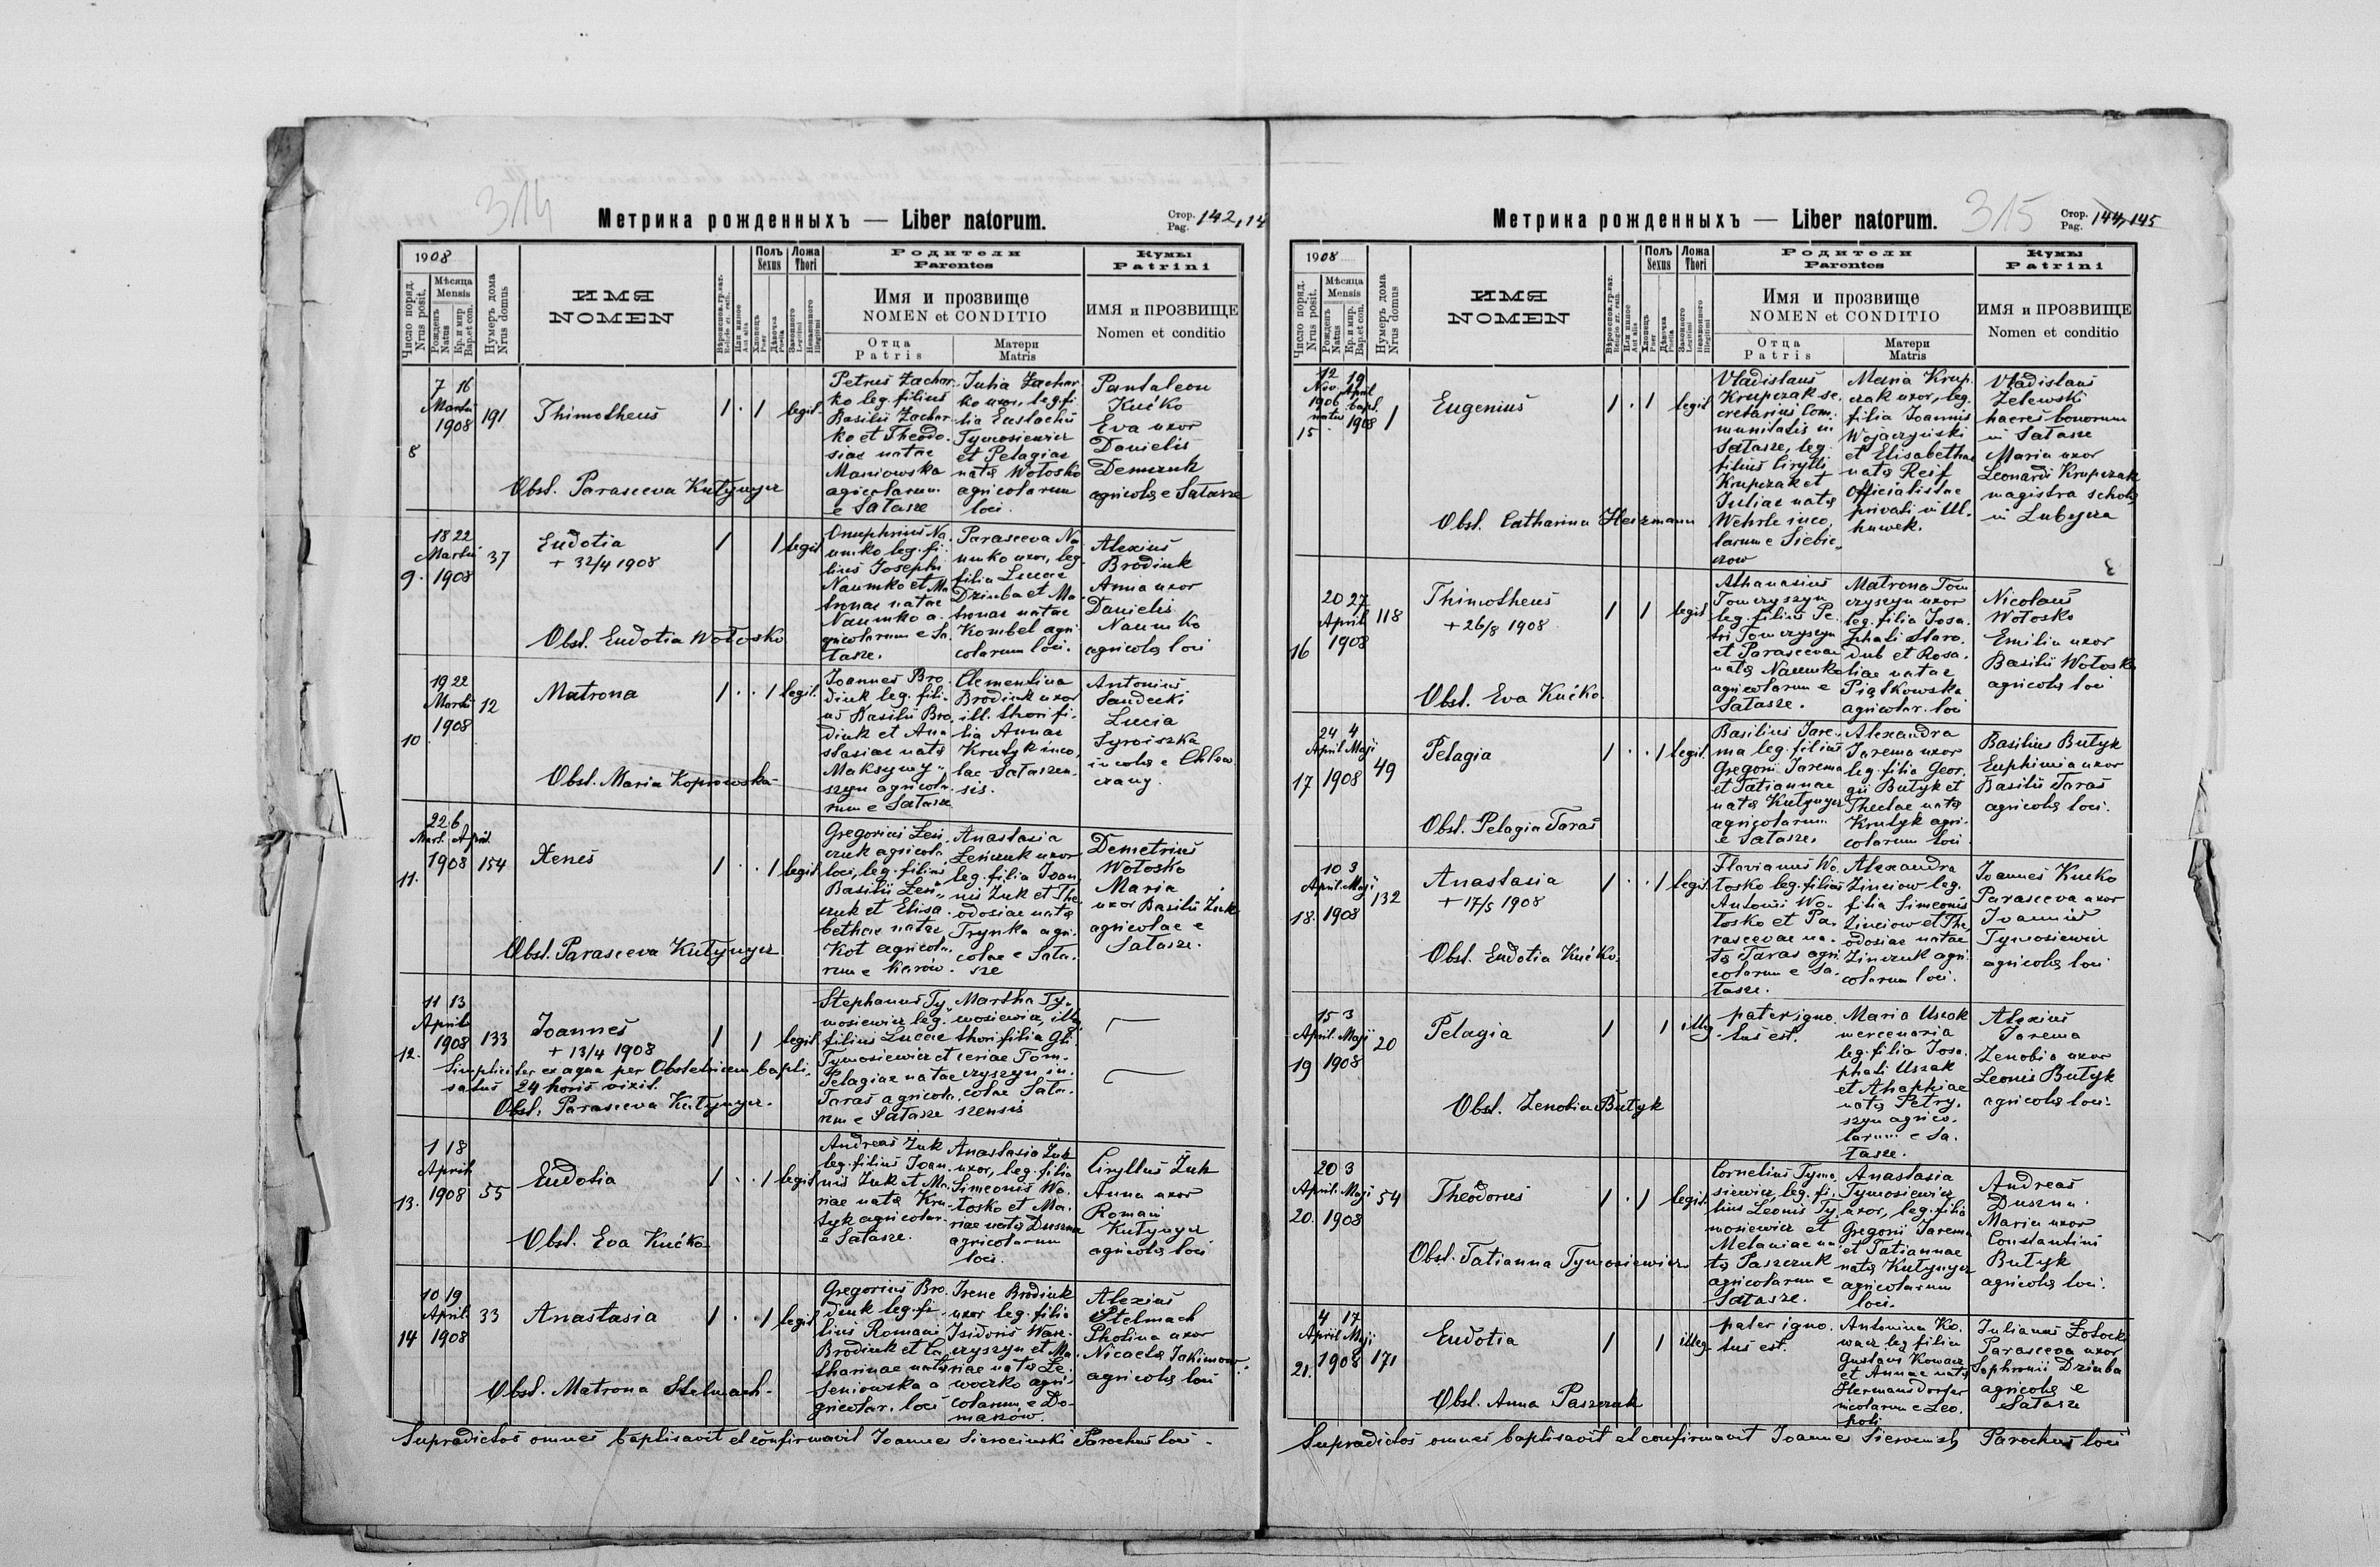 314
Метрика рожденныхъ — Liber natorum.
Стор. Pag. 142, 14
1908
Число поряд. Nrus posit.
Мѣсяца Mensis
Рожденъ Natus
Кр. и мир Bap. et con.
Нумеръ дома Nrus domus
ИМЯ
NOMEN
Полъ Sexus
Хлопецъ Puer
Дѣвочка Puella
Ложа Thori
Законного Legitimi
Незаконного Illegitimi
Родители
Parentes
Имя и прозвище
NOMEN et CONDITIO
Отца Patris
Матери Matris
Кумы
Patrini
ИМЯ и ПРОЗВИЩЕ
Nomen et conditio
8
7 16
Martii
1908
191
Thimotheus
1 . 1 legit.
Obst. Parasceva Kutynycz
Petrus Zachar
ko leg. filius
Basilii Zachar
ko et Theodo
siae natae
Maniowska
agricolarum
e Sałasze
Julia Zachar
ko uxor, leg. fi
lia Eustachii
Tymosiewicz
et Pelagiae
natę Wołosko
agricolarum
loci.
Pantaleon
Kućko
Eva uxor
Danielis
Demczuk
agricolę e Sałasze
9.
18 22
Martii
1908
37
Eudotia
1 1 legit
Obst. Eudotia Wołosko
Onuphrius Na
umko leg. fi
lius Josephi
Naumko et Ma
tronae natae
Naumko a
gricolarum e Sa
łasze.
Parasceva Na
umko uxor, leg
filia Lucae
Dziuba et Ma
tronae natae
Kombel agri
colarum loci.
Alexius
Brodiuk
Anna uxor
Danielis
Naumko
agricolę loci
10
19 22
Martii
1908
12
Matrona
1 . . 1 legit.
Obst. Maria Koprowska
Joannes Bro
diuk leg. fili
us Basilii Bro
diuk et Ana
stasiae natę
Maksymy
szyn agricola
rum e Sałasze
Clementina
Brodiuk uxor
ill. thori fi
lia Annae
Krutyk inco
lae Sałaszen
sis.
Antonius
Sandecki
Lucia
incolę e
11.
22 6
Mart. April.
1908
154
Xenes
1 . . 1 legit
Obst. Parasceva Kutynycz
Gregorius Zen
czuk agricola
loci, leg. filius
Basilii Zen
czuk et Elisa
bethae natae
Kot agricola
rum e
Anastasia
Zenczuk uxor
leg. filia Joan
nis Żuk et The
odosiae natę
Trynka agri
colae e Sała
sze
Demetrius
Wołosko
Maria
uxor Basilii Żuk
agricolae e
Sałasze.
12.
11 13
April.
1908
133
Joannes
+ 13/4 1908
1 1 legit
Simpliciter ex aqua per Obstetricem bapti
satus 24 horis vixit.
Obst. Parasceva Kutynycz.
Stephanus Ty
mosiewicz leg.
filius Lucae
Tymosiewicz et
Pelagiae natae
Taras agricola
rum e Sałasze
Martha Ty
mosiewicz, illg
thori filia Gli
ceriae Tom
czyszyn in
colae Sała
szensis
13.
1 18
April
1908
55
Eudotia
1 . . 1 legit
Obst. Eva Kućko
Andreas Żuk
leg. filius Joan
nis Żuk et Ma
riae natę Kru
tyk agricolar.
e Sałasze.
Anastasia Żuk
uxor, leg. filia
Simeonis Wo
łosko et Ma
riae natę Duszna
agricolarum
loci.
Cyryllus Żuk
Anna uxor
Romani
Kutynycz
agricolę loci
14
10 19
April.
1908
33
Anastasia
1 . . 1 legit
Obst. Matrona Stelmach.
Gregorius Bro
diuk leg. fi
lius Romani
Brodiuk et Ca
tharinae natę
Seniowska a
gricolar. loci
Irene Brodiuk
uxor leg. filia
Isidoris Wasz
czyszyn et Ma
riae natę Le
woczko agri
colarum e Do
maszów.
Alexius
Stelmach
Pholina uxor
Nicaelę Jakimow
agricolę loci
Supradictos omnes baptisavit et confirmavit Joannes Sierociński Parochus loci.
Метрика рожденныхъ — Liber natorum.
315
Стор. Pag. 144, 145
1908
Число поряд. Nrus posit.
Мѣсяца Mensis
Рожденъ Natus
Кр. и мир. Bap. et con.
Нумеръ дома Nrus domus
ИМЯ
NOMEN
Полъ Sexus
Хлопецъ Puer
Дѣвочка Puella
Ложа Thori
Законного Legitimi
Незаконного Illegitimi
Родители
Parentes
Имя и прозвище
NOMEN et CONDITIO
Отца Patris
Матери Matris
Кумы
Patrini
ИМЯ и ПРОЗВИЩЕ
Nomen et conditio
15
12 19
Nov. April
1906 bapt.
natus 1908
1
Eugenius
1 . 1 legit
Obst. Catharina Herzmann
Vladislaus
Krupczak se
cretarius Com
munitatis in
Sałasze, leg.
filius Cirylli
Krupczak et
Juliae natę
Wehrle inco
larum e Siebie
czow
Maria Krup
czak uxor, leg.
filia Joannis
Wojaczyński
et Elisabethae
natę Reif
officialistae
privati in Ul
huwek.
Vladislaus
Żelewski
haeres bonorum
in Sałasze
Maria uxor
Leonardi Krupczak
magistra scholę
in Lubycza
16
20 27
April
1908
118
Thimotheus
+ 26/8 1908
1 1 legit
Obst. Eva Kućko
Athanasius
Tomczyszyn
leg. filius Pe
tri Tomczyszyn
et Parascevae
natę Naumko
agricolarum e
Sałasze.
Matrona Tom
czyszyn uxor
leg. filia Josa
phati Staro
dub et Rosa
liae natae
Piątkowska
agricolar. loci
Nicolaus
Wołosko
Emilia uxor
Basilii Wołosko
agricolę loci
17
24 4
April Maji
1908
49
Pelagia
1 . . 1 legit.
Obst. Pelagia Taras
Basilius Jare
ma leg. filius
Gregorii Jarema
et Tatiannae
natę Kutynycz
agricolarum
e Sałasze.
Alexandra
Jarema uxor
leg. filia Geor
gii Butyk et
Theclae natę
Krutyk agri
colarum loci
Basilius Butyk
Euphimia uxor
Basilii Taras
agricolę loci.
18.
10 3
April. Maji
1908
132
Anastasia
+ 17/5 1908
1 . . 1 legit
Obst. Eudotia Kućko.
Flavianus Wo
łosko leg. filius
Antonii Wo
łosko et Pa
rascevae na
tę Taras agri
colarum e Sa
łasze.
Alexandra
Zinciow leg.
filia Simeonis
Zinciow et The
odosiae natae
Zinczuk agri
colarum loci.
Joannes Kucko
Parasceva uxor
Joannis
Tymosiewicz
agricolę loci
19
15 3
April. Maji
1908
20
Pelagia
1 1 illeg
Obst. Zenobia Butyk
pater igno
tus est.
Maria Uszak
mercenaria
leg. filia Josa
phati Uszak
et Ahaphiae
natę Petry
szyn agrico
larum e Sa
łasze.
Alexius
Jarema
Zenobia uxor
Leonis Butyk
agricolę loci.
20.
20 3
April. Maji
1908
54
Theodorus
1 . 1 legit.
Obst. Tatianna Tymosiewicz
Cornelius Tymo
siewicz, leg. fi
lius Leonis Ty
mosiewicz et
Melaniae na
tę Paszczuk
agricolarum e
Sałasze.
Anastasia
Tymosiewicz
uxor, leg. filia
Gregorii Jarema
et Tatiannae
natę Kutynycz
agricolarum
loci.
Andreas
Duszna
Maria uxor
Constantini
Butyk
agricolę loci.
21.
4 17
April Maji
1908
171
Eudotia
1 1 illeg
Obst. Anna Paszczuk
pater igno
tus est.
Antonina Ko
wacz leg filia
Gustavi Kowacz
et Annae natę
Hermansdorfer
incolarum e Leo
poli
Julianus Zołocki
Parasceva uxor
Sophronii Dziuba
agricolę e
Sałasze
Supradictos omnes baptisavit et confirmavit Joannes Parochus loci